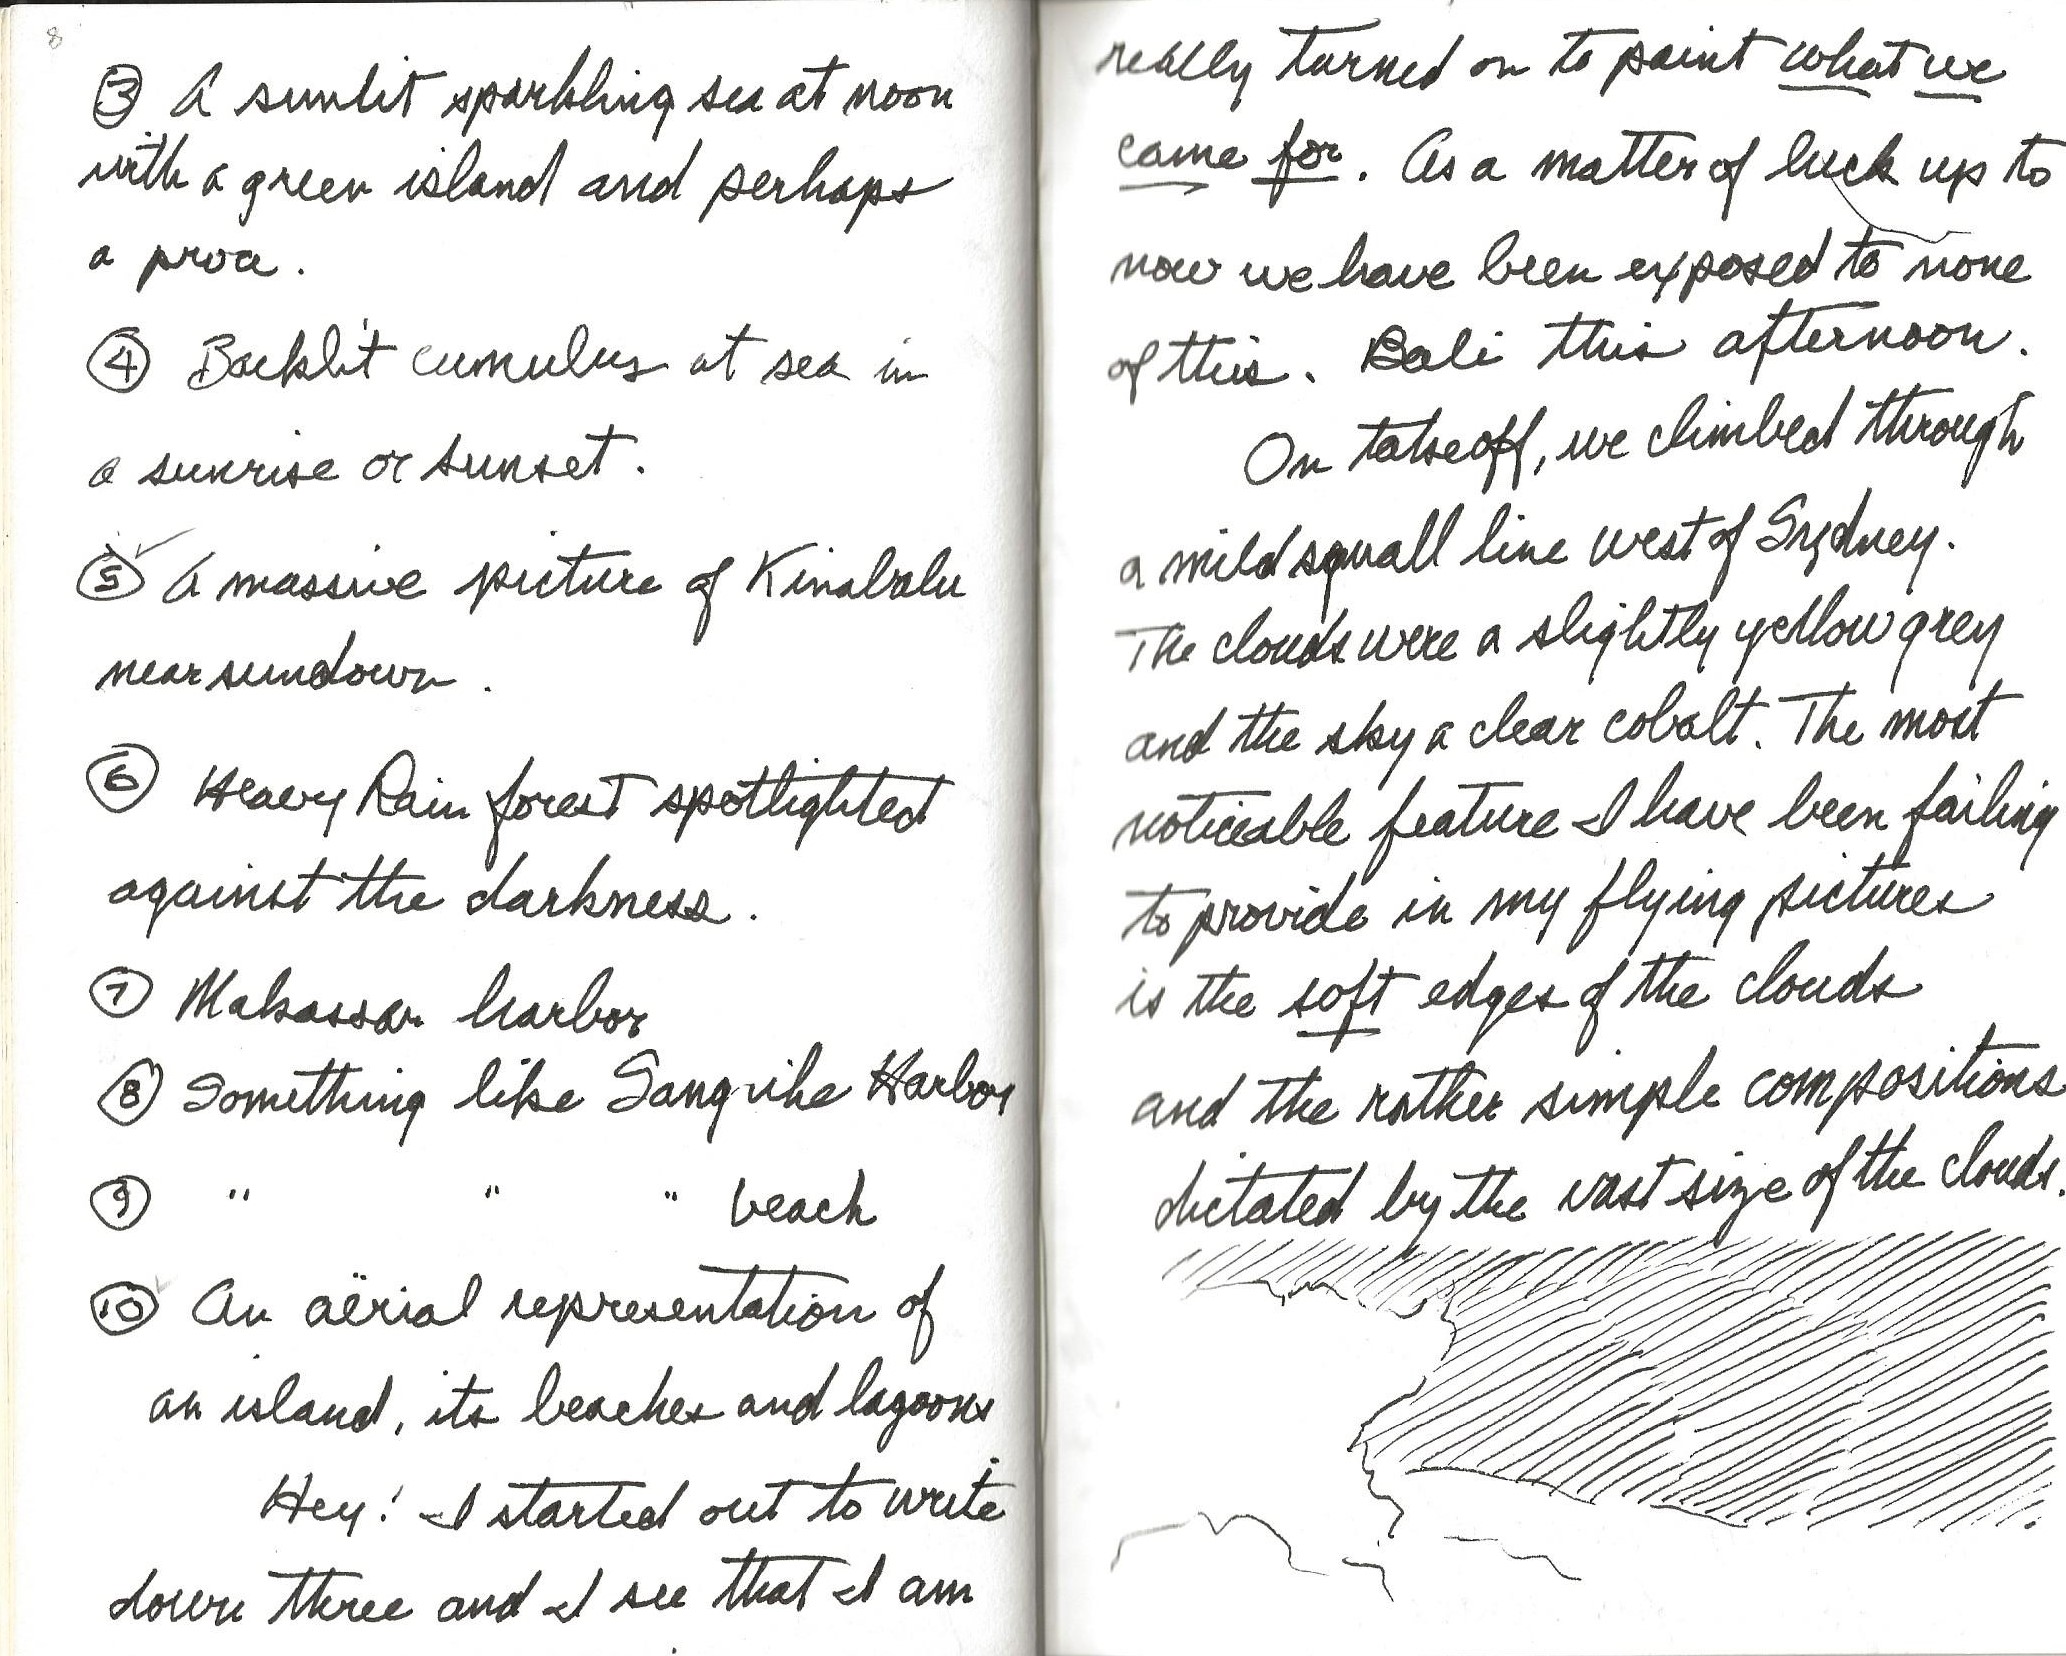 8
③ A sunlit sparkling sea at noon
with a green island and perhaps
a proa.
④ Backlit cumulus at sea in
a sunrise or sunset.
⑤ A massive picture of Kinabalu
near sundown.
⑥ Heavy Rain forest spotlighted
against the darkness.
⑦ Makassar harbor
⑧ Something like Sangihe Harbor
⑨ " " " beach
⑩ An aërial representation of
an island, its beaches and lagoons
Hey! I started out to write
down three and I see that I am
really turned on to paint what we
came for. As a matter of luck up to
now we have been exposed to none
of this. Bali this afternoon.
On takeoff, we climbed through
a mild squall line west of Sydney.
The clouds were a slightly yellow grey
and the sky a clear cobalt. The most
noticeable feature I have been failing
to provide in my flying pictures
is the soft edges of the clouds
and the rather simple compositions
dictated by the vast size of the clouds.